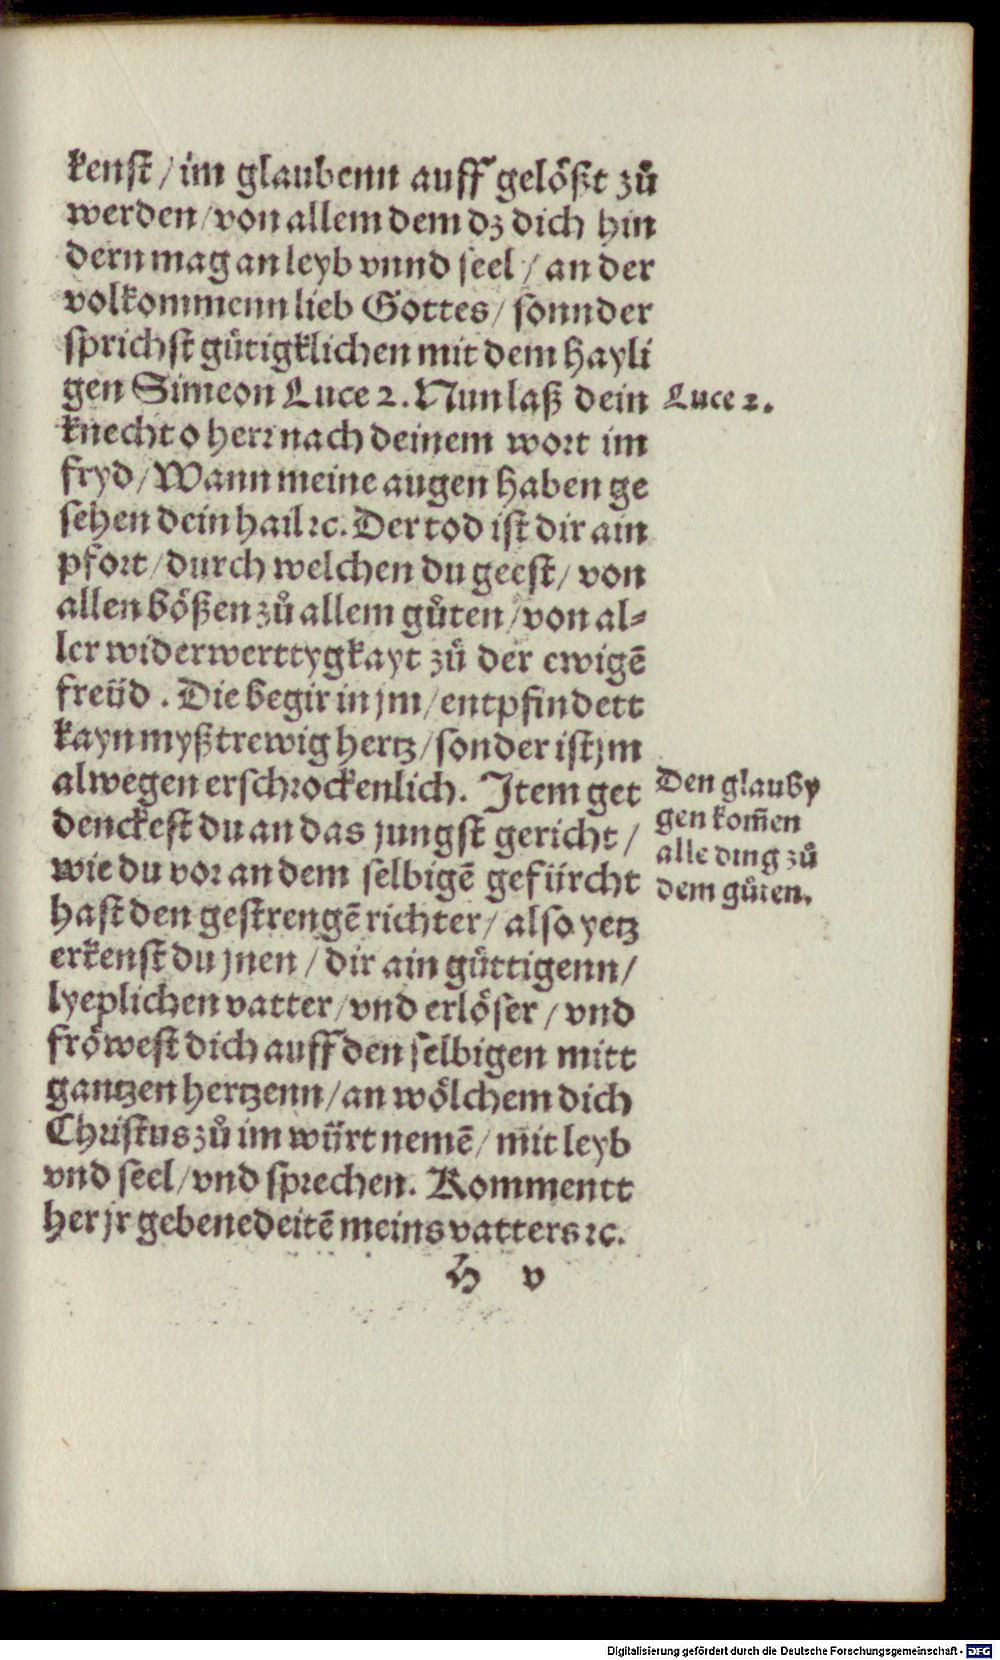 kenst / im glaubenn auff gelößt zů
werden / von allem dem dz dich hin
dern mag an leyb vnnd seel / an der
volkommenn lieb Gottes / sonnder
sprichst gütigklichen mit dem hayli
gen Simeon Luce 2. Nun laß dein
Luce 2.
knecht o herr nach deinem wort im
fryd / Wann meine augen haben ge
sehen dein hail ꝛc. Der tod ist dir ain
pfort / durch welchen du geest / von
allen bößen zů allem gůten / von al⸗
ler widerwerttygkayt zů der ewigē
freüd . Die begir in jm / entpfindett
kayn myßtrewig hertz / sonder ist jm
alwegen erschrockenlich. Item get
denckest du an das jungst gericht /
wie du vor an dem selbigē gefürcht
hast den gestrengē richter / also yetz
erkenst du jnen / dir ain güttigenn /
lyeplichen vatter / vnd erlöser / vnd
fröwest dich auff den selbigen mitt
gantzen hertzenn / an wölchem dich
Christus zů im würt nemē / mit leyb
vnd seel / vnd sprechen. Kommentt
her jr gebenedeitē meins vatters ꝛc.
Den glauby
gen kom̄en
alle ding zů
dem gůten.
H v
Digitalisierung gefördert durch die Deutsche Forschungsgemeinschaft - DFG